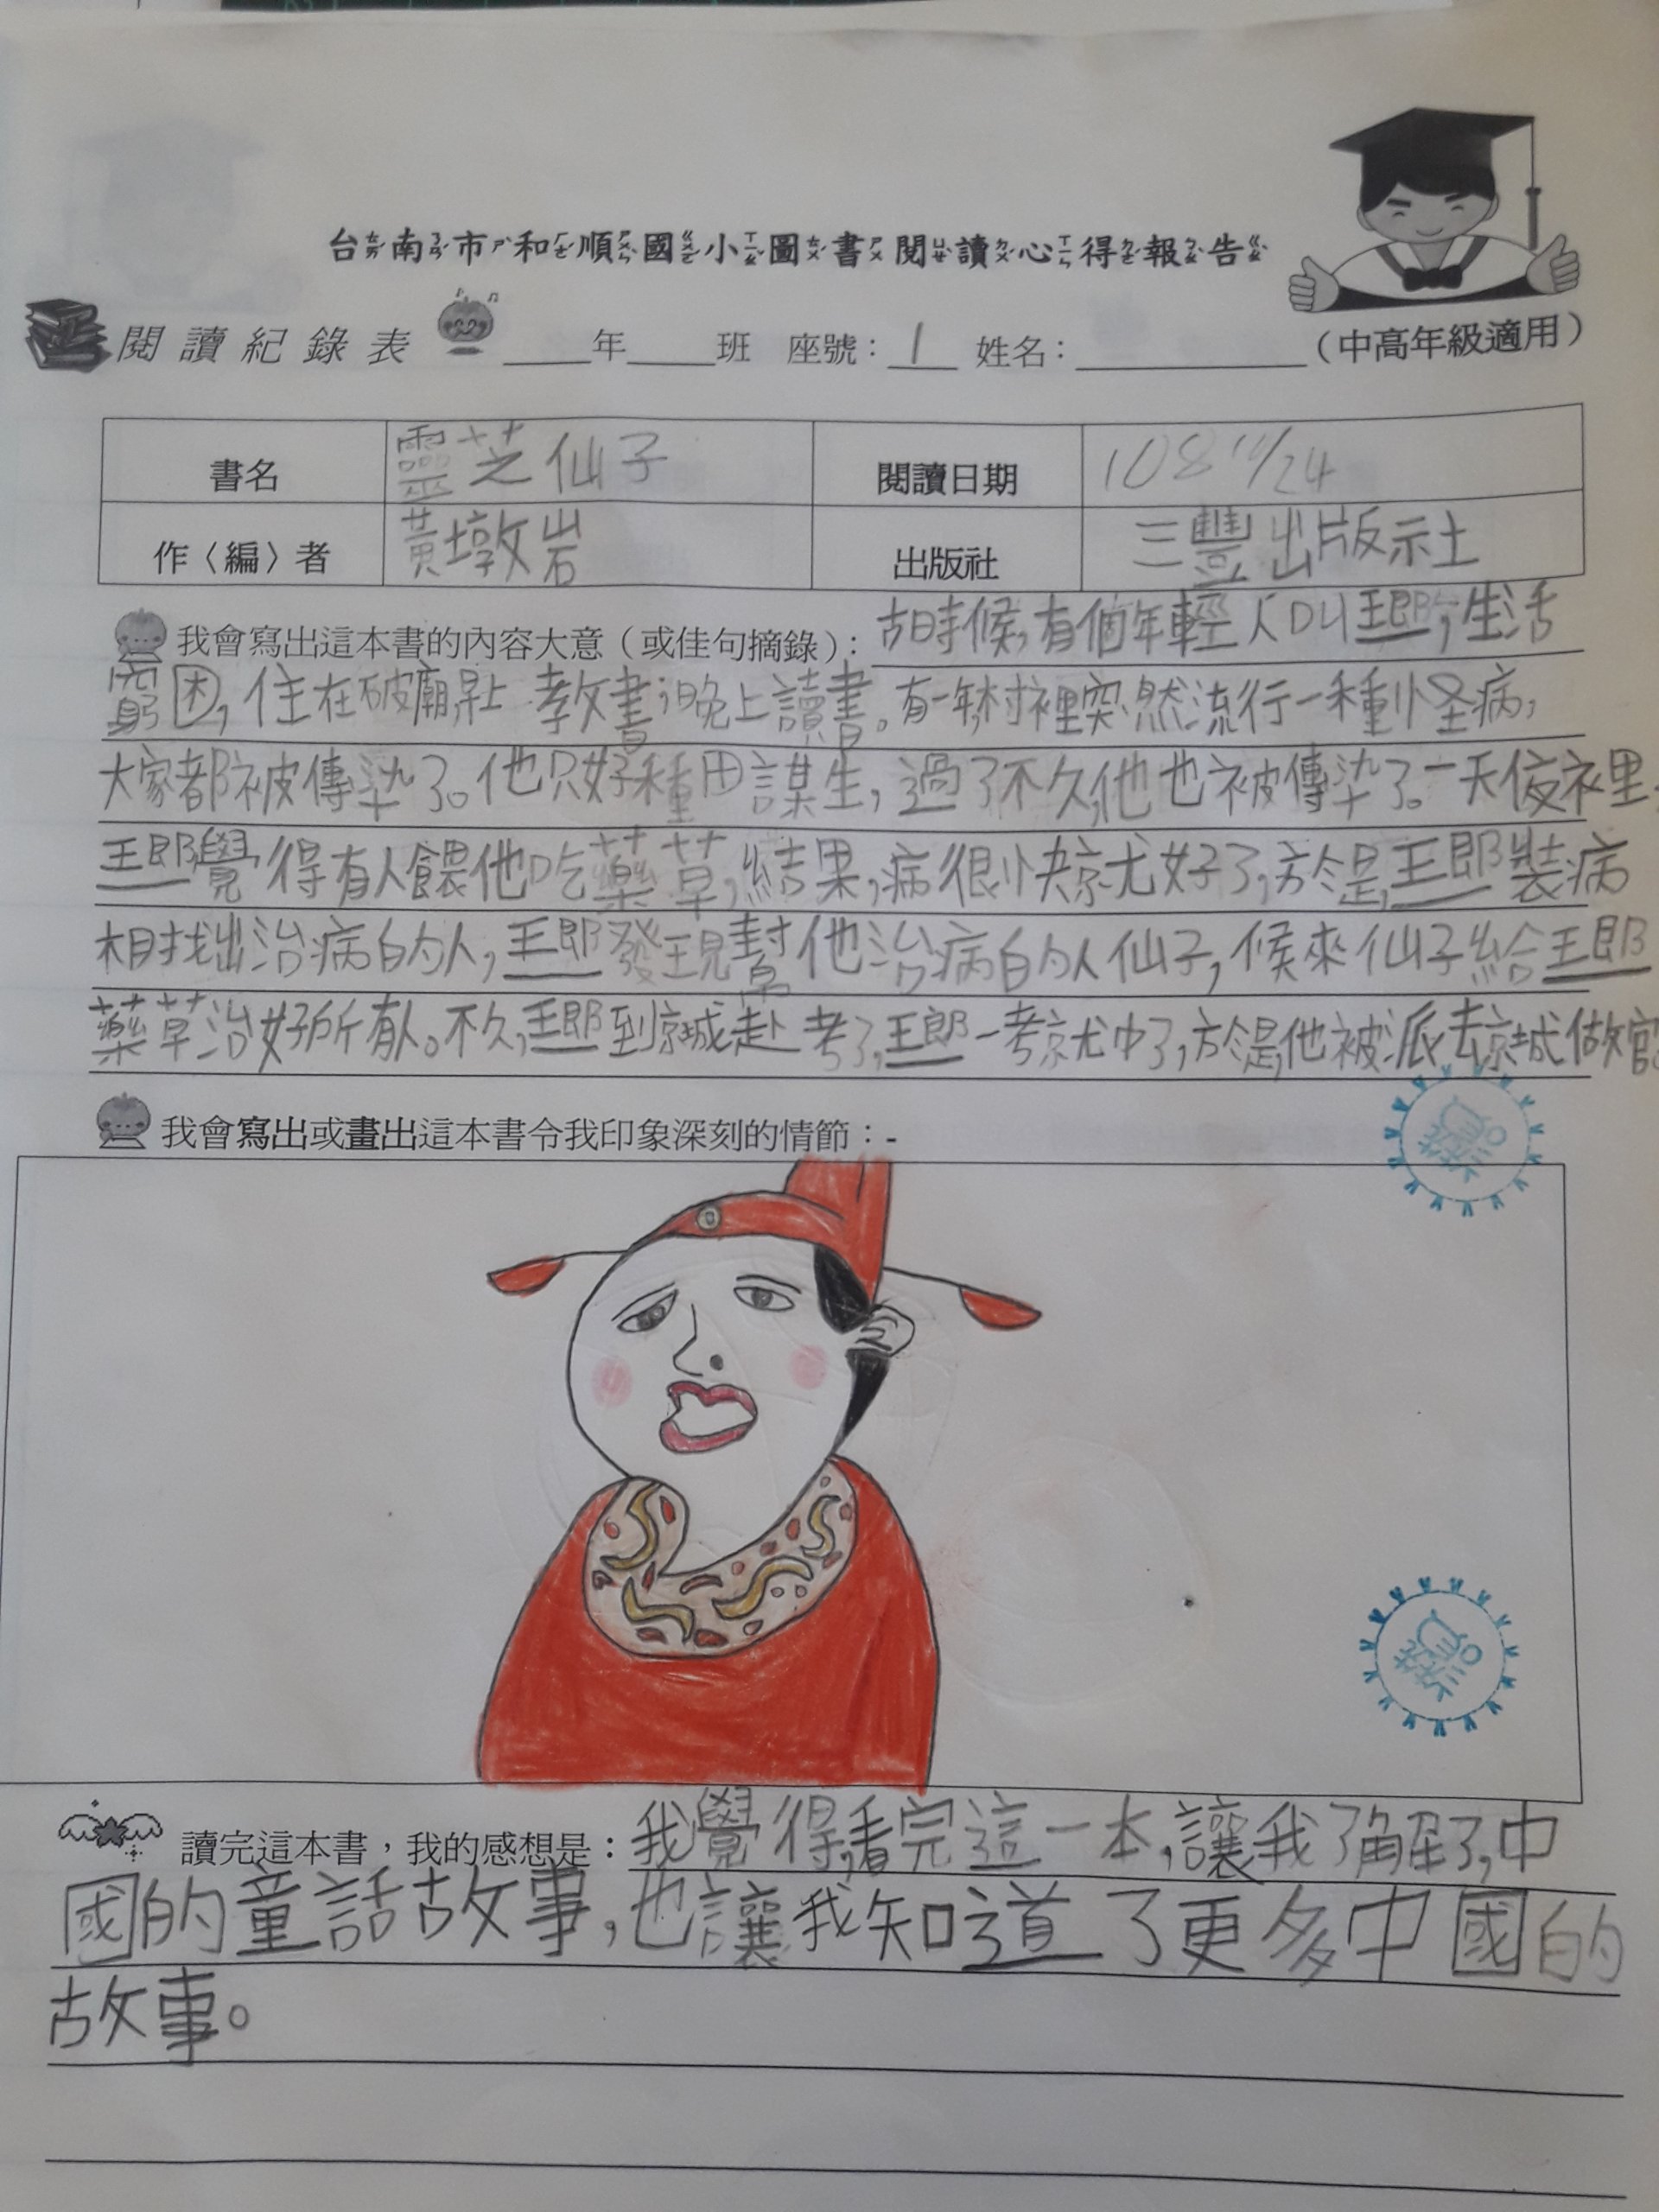 台南市和順國小圖書閱讀心得報告
閱讀紀錄表 ____年____班 座號：1 姓名：__________（中高年級適用）
書名 靈芝仙子 閱讀日期 108 10/24
作〈編〉者 黃墩岩 出版社 三豐出版社
我會寫出這本書的內容大意（或佳句摘錄）：古時候,有個年輕人叫王郎,生活
窮困,住在破廟,早上教書,晚上讀書。有一年,村裡突然流行一種怪病,
大家都被傳染了。他只好種田謀生,過了不久,他也被傳染了。一天夜裡,
王郎覺得有人餵他吃藥草,結果,病很快就好了,於是,王郎裝病
想找出治病的人,王郎發現幫他治病的人仙子,候來仙子給王郎
藥草治好所有人。不久,王郎到京城赴考了,王郎一考就中了,於是,他被派去京城做官
我會寫出或畫出這本書令我印象深刻的情節：-
讀完這本書，我的感想是：我覺得,看完這一本,讓我了解了,中
國的童話故事,也讓我知道了更多中國的
故事。